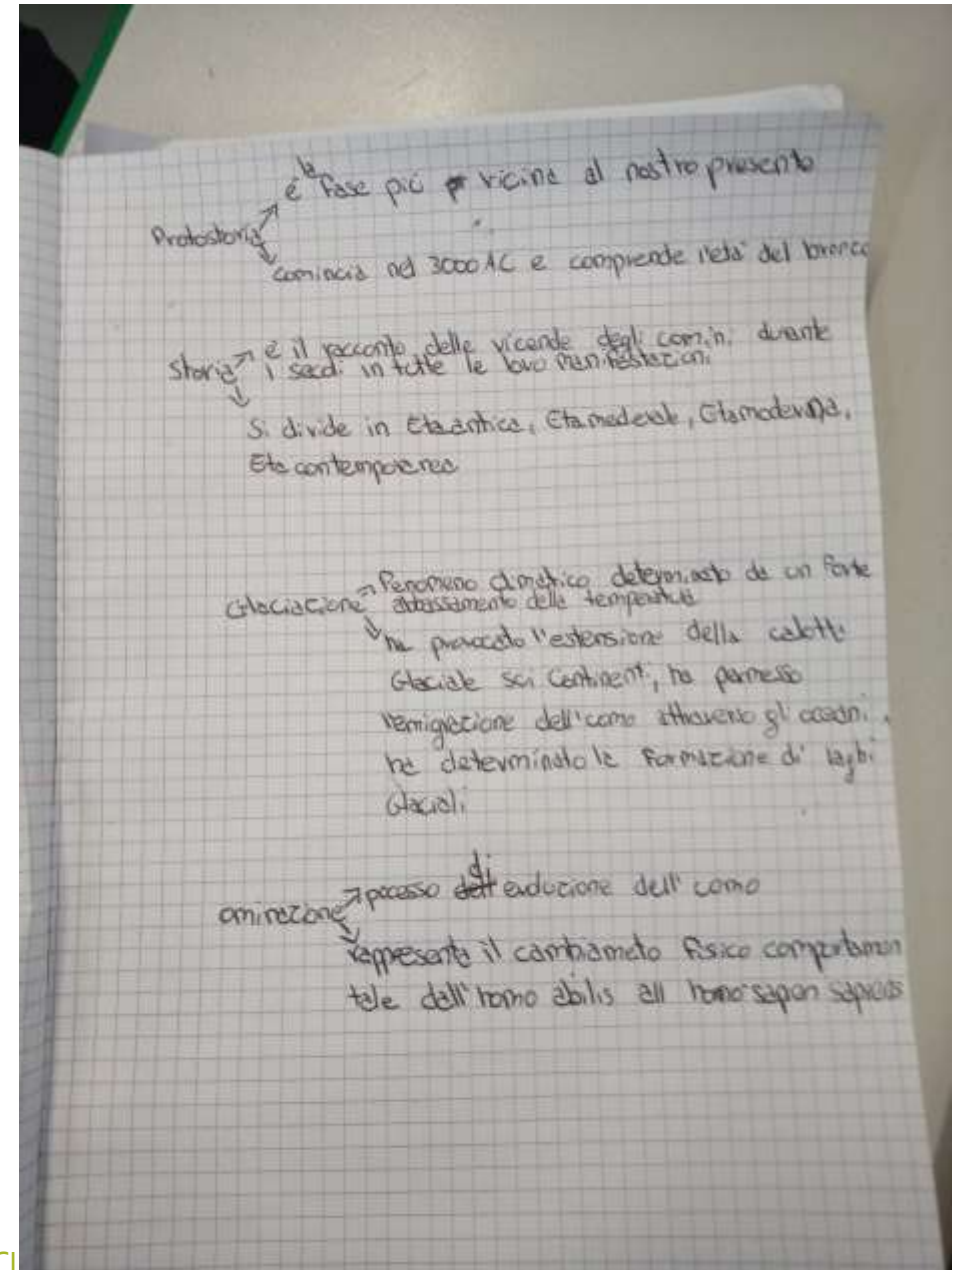 è la fase più vicina al nostro presente
Protostoria
comincia nel 3000 AC e comprende l'età del bronzo
è il racconto delle vicende degli uomini durante
Storia
i secoli in tutte le loro manifestazioni
Si divide in Eta antica, Eta medevale, Eta moderna,
Eta contemporanea
Fenomeno climatico determinato da un forte
Glaciazione
abbassamento della temperatura
ha provocato l'estensione della calotta
Glaciale sui Continenti, ha permesso
l'emigrazione dell'uomo attraverso gl oceani,
ha determinato la formazione di laghi
Glaciali
pocesso di evoluzione dell' uomo
ominazione
rappresenta il cambiameto fisico comportamen
tale dall'homo abilis all homo sapien sapiens